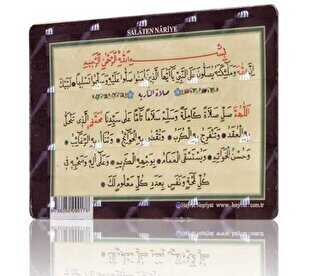 SALÂTEN NÂRİYE
بِسْمِ اللهِ الرَّحْمٰنِ الرَّحِيمِ
إِنَّ اللهَ وَمَلٰئِكَتَهُ يُصَلُّونَ عَلَى النَّبِيِّ يَا أَيُّهَا الَّذِينَ آمَنُوا صَلُّوا عَلَيْهِ وَسَلِّمُوا تَسْلِيمًا لَبَّيْكَ
صلاة النارية
اَللّٰهُمَّ صَلِّ صَلَاةً كَامِلَةً وَسَلِّمْ سَلَامًا تَامًّا عَلَى سَيِّدِنَا مُحَمَّدٍ الَّذِي تَنْحَلُّ
بِهِ الْعُقَدُ وَتَنْفَرِجُ بِهِ الْكُرَبُ وَتُقْضَى بِهِ الْحَوَائِجُ وَتُنَالُ بِهِ الرَّغَائِبُ
وَحُسْنُ الْخَوَاتِمِ وَيُسْتَسْقَى الْغَمَامُ بِوَجْهِهِ الْكَرِيمِ وَعَلَى آلِهِ وَصَحْبِهِ فِي
كُلِّ لَمْحَةٍ وَنَفَسٍ بِعَدَدِ كُلِّ مَعْلُومٍ لَكَ